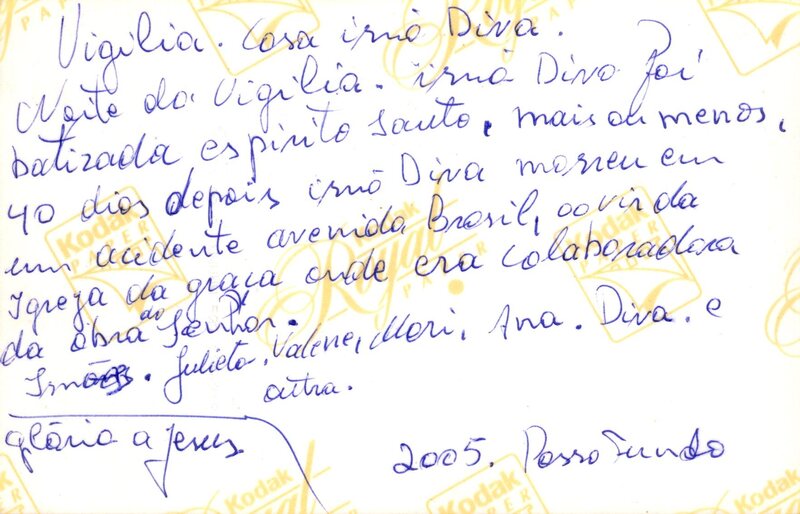 Vigília. Casa irmã Diva.
Noite da Vigília. irmã Diva foi
batizada espirito santo, mais ou menos,
40 dias depois irmã Diva morreu em
um acidente avenida Brasil, ao vir da
Igreja da graça onde era colaboradora
da obra do Senhor.
Irmãs. Julieta, Valerie, Mari, Ana. Diva. e
outra.
glória a Jesus
2005. Passo Fundo
Kodak
PAPER
Royal